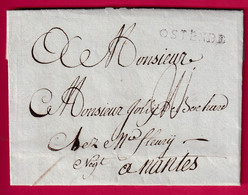 A Monsieur
OSTENDE
Monsieur
chez Mr fleury
Negt
a nantes